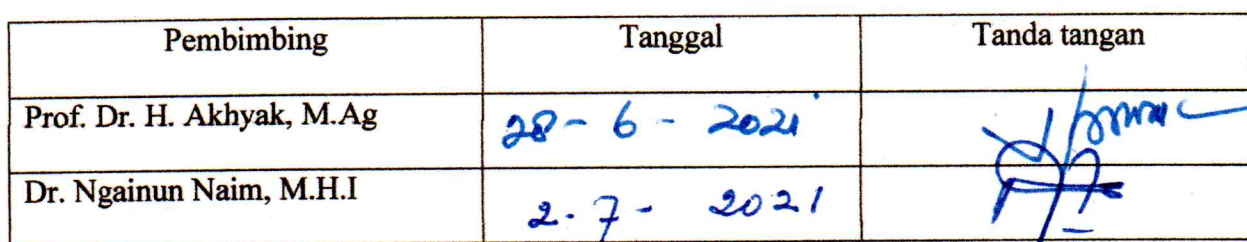 Pembimbing Tanggal Tanda tangan
Prof. Dr. H. Akhyak, M.Ag 28 - 6 - 2021
Dr. Ngainun Naim, M.H.I 2 - 7 - 2021